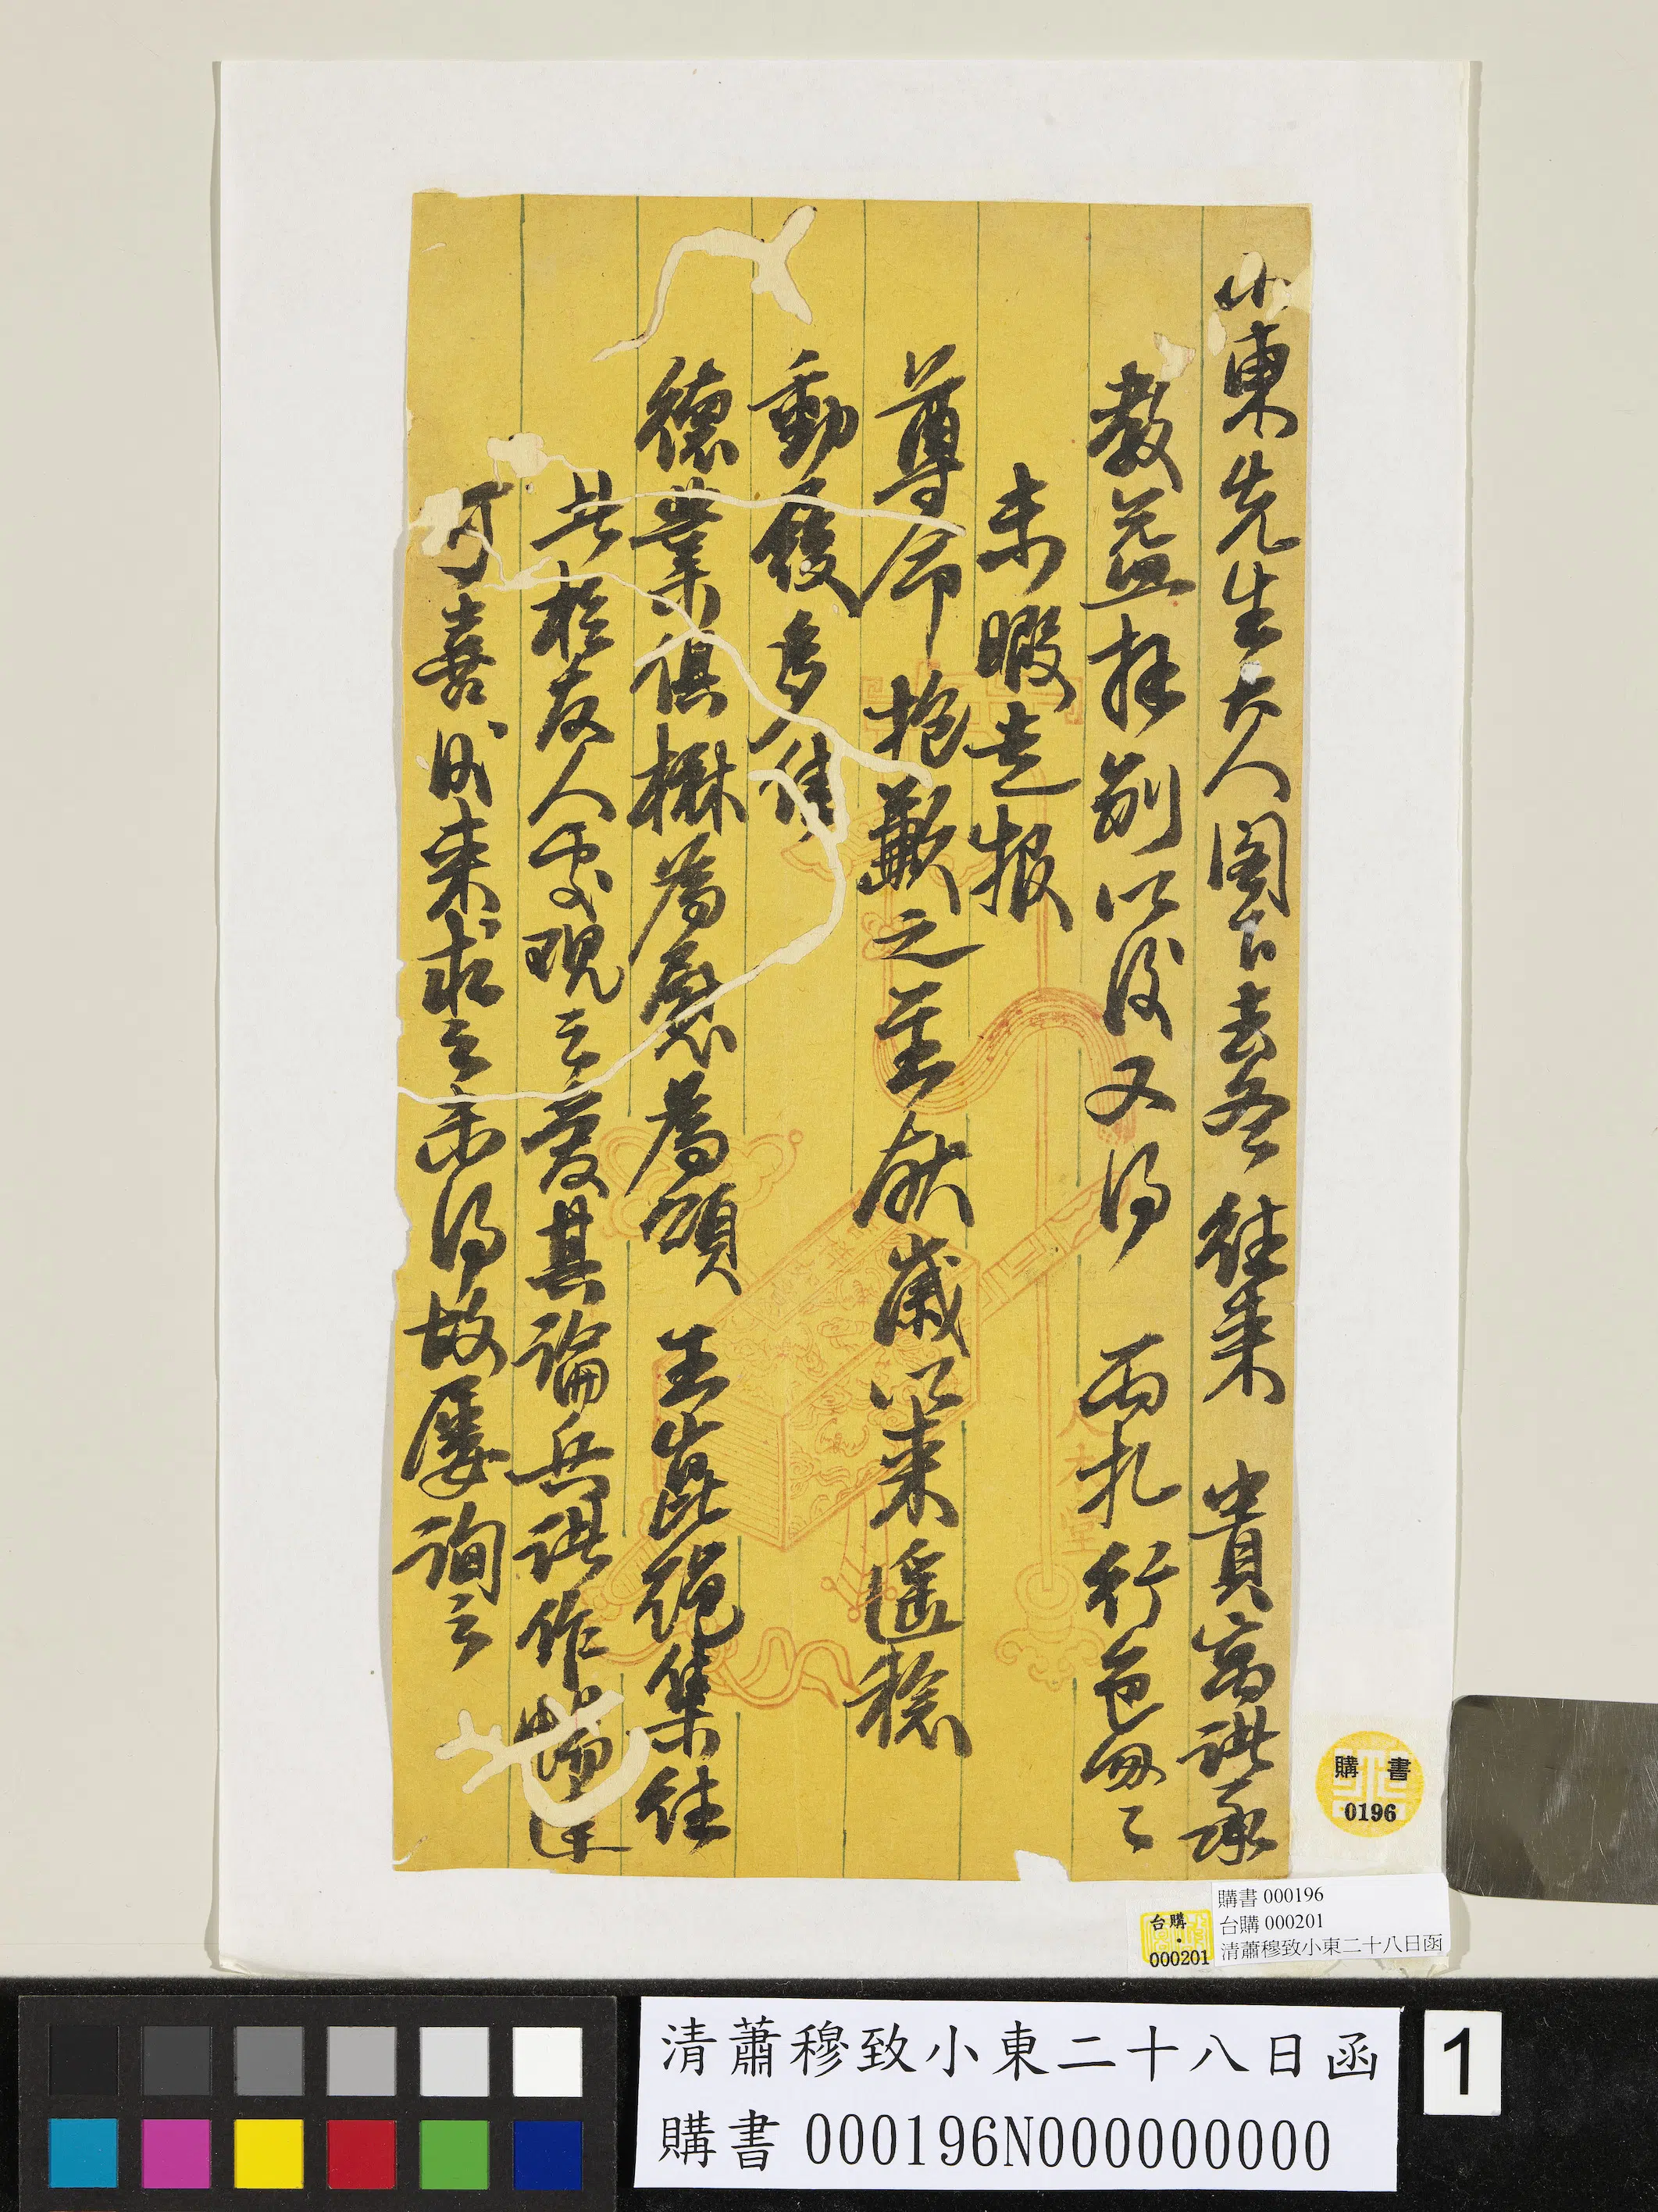 小東先生大人閣下去冬往來 貴寓諸承
教益拜別以後又得 兩札行色匆匆
未暇走報
尊命抱歉之至獻歲以來遙稔
動履多佳
德業俱楙為慰為頌 王崑繩集往
歲於友人處現之愛其論兵諸作暢達
可喜成來求之未得故屢詢之
八木堂
購書
0196
台購
000201
購書 000196
台購 000201
清蕭穆致小東二十八日函
清蕭穆致小東二十八日函
購書 000196N000000000
1